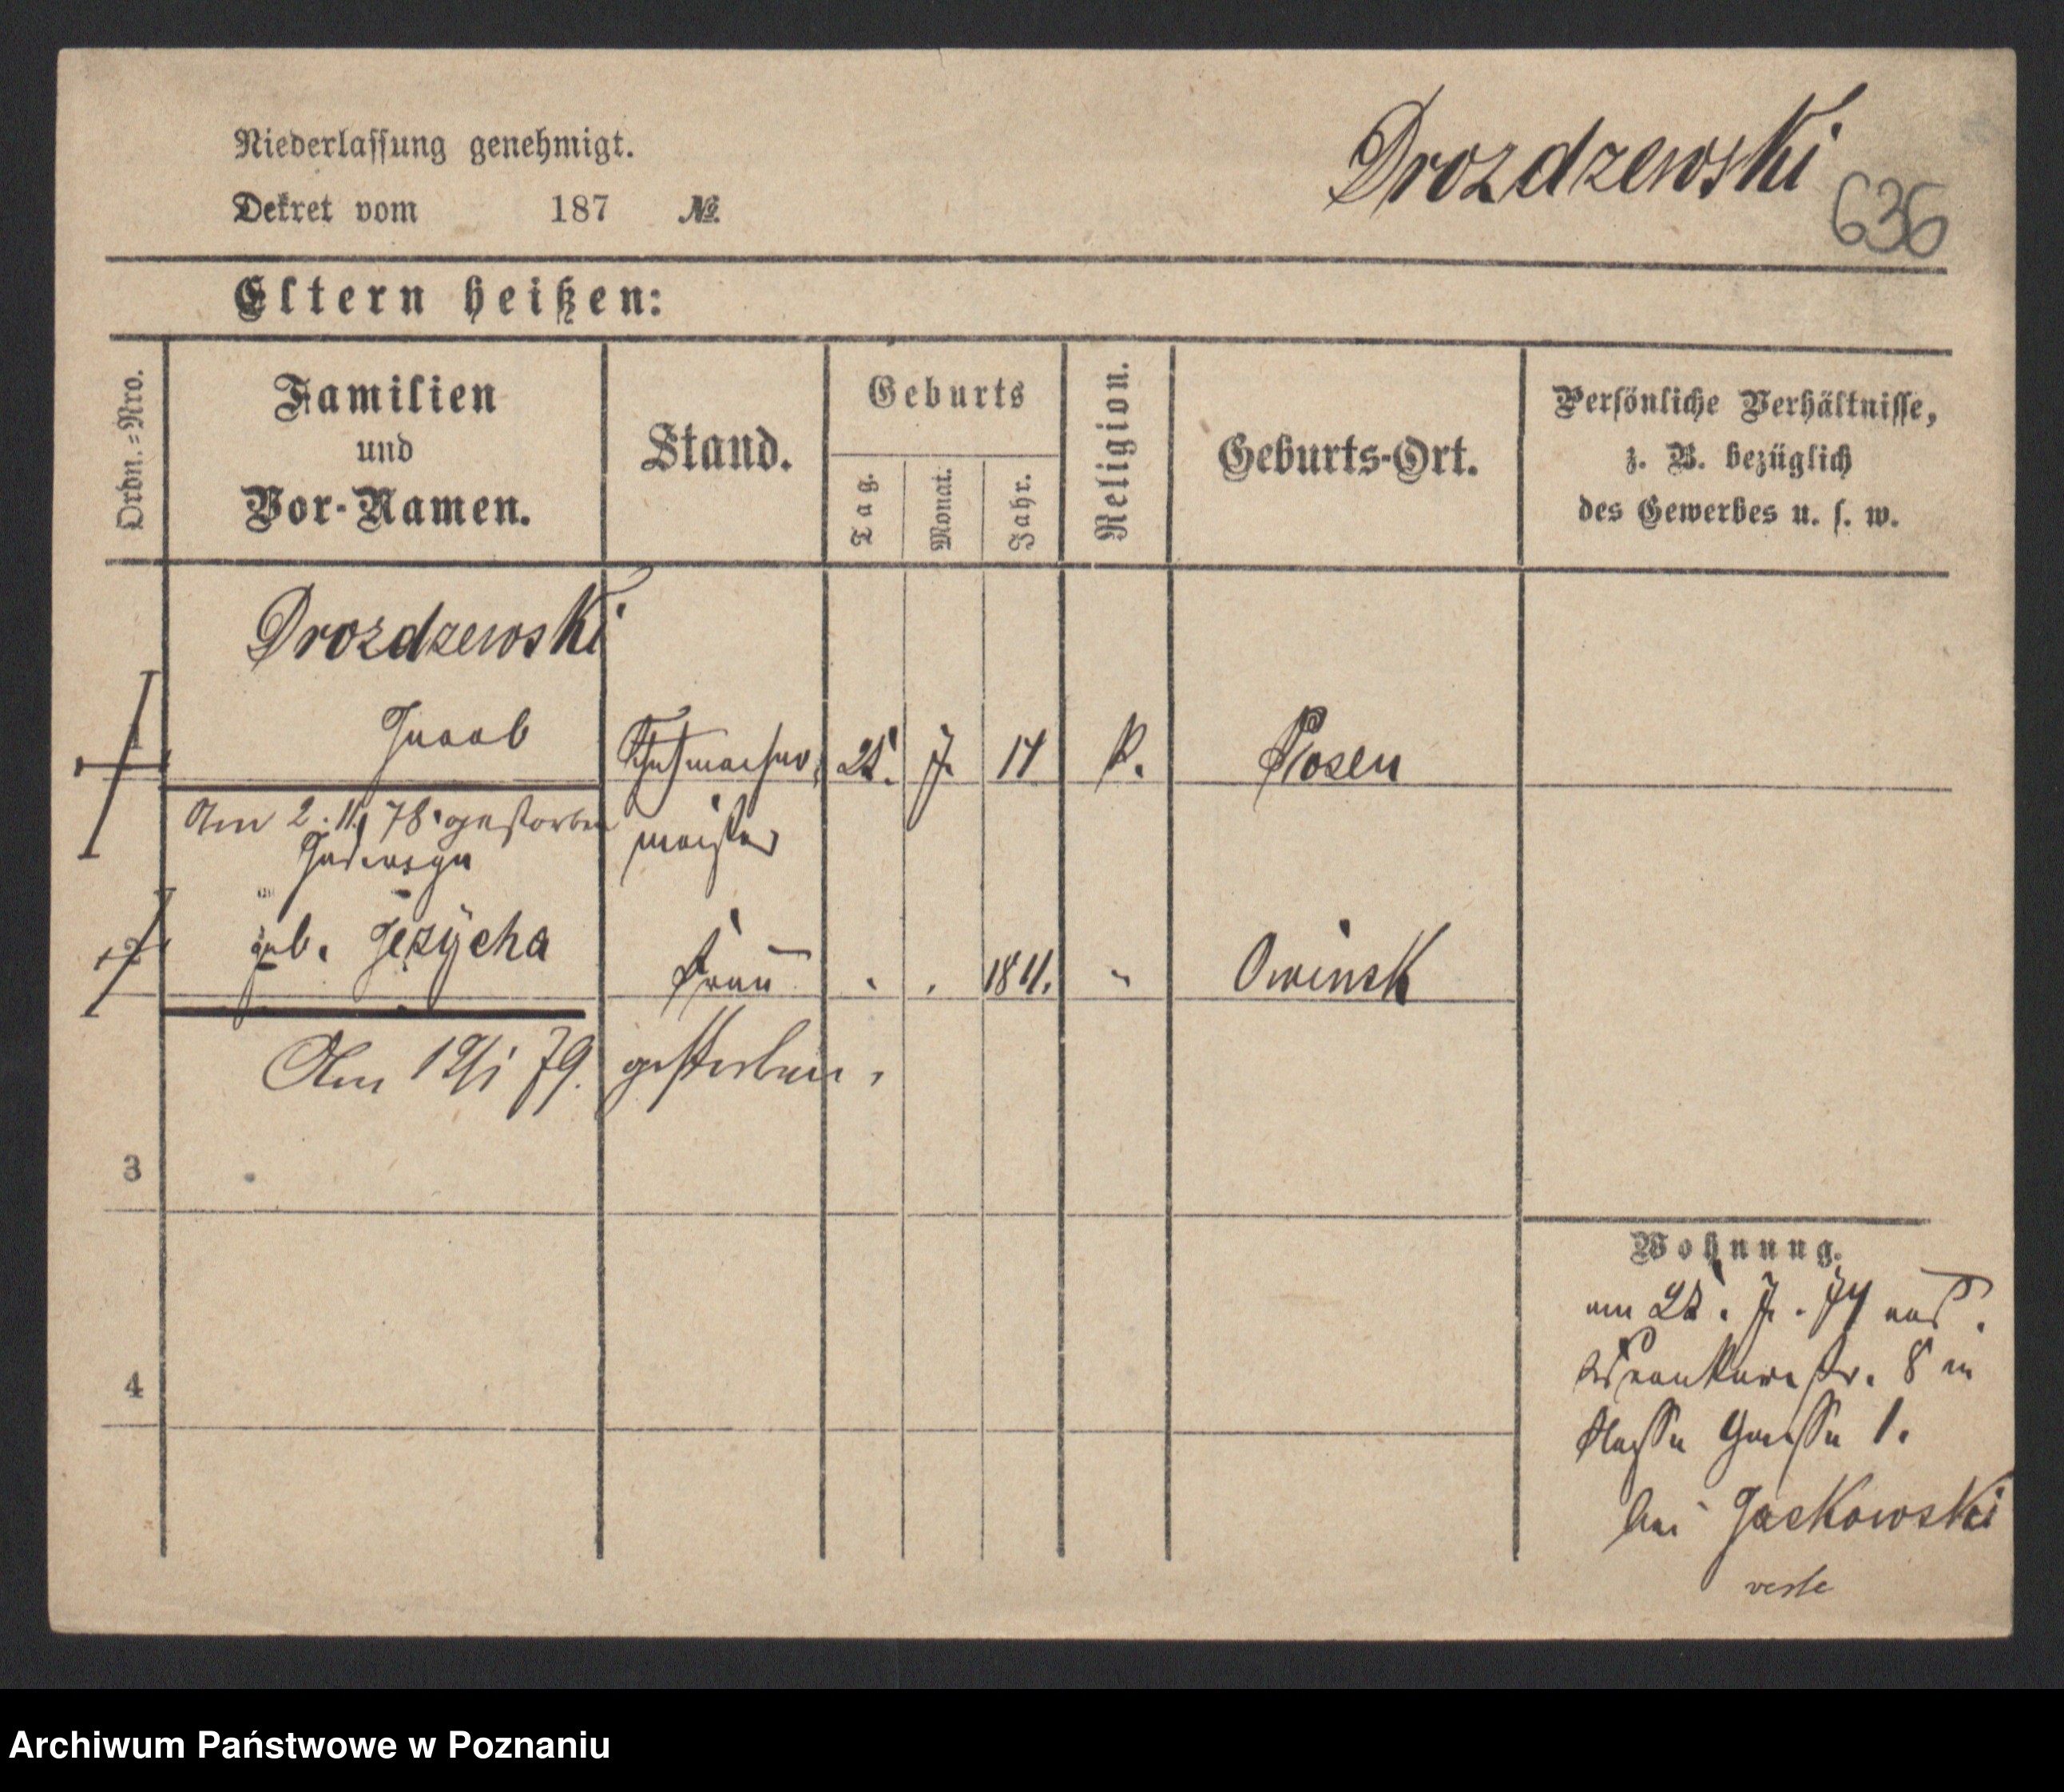 Niederlassung genehmigt.
Drozdzewski
636
Dekret vom 187 №.
Eltern heißen:
Ordn.=Nro.
Familien
und
Vor-Namen.
Stand.
Geburts
Tag.
Monat.
Jahr.
Religion.
Geburts-Ort.
Persönliche Verhältnisse,
z. B. bezüglich
des Gewerbes u. s. w.
Drozdzewski
1 Jacob Schuhmacher 25. 7. 17 k. Posen
Am 2. 11. 78. gestorben meister
2 geb. Jezycha Frau 1811. " Owinsk
Am 19/1 79. gestorben.
3
4
Wohnung.
am 7. 74
str. 8 in
Gasse 1.
bei Jackowski
verte
Archiwum Państwowe w Poznaniu